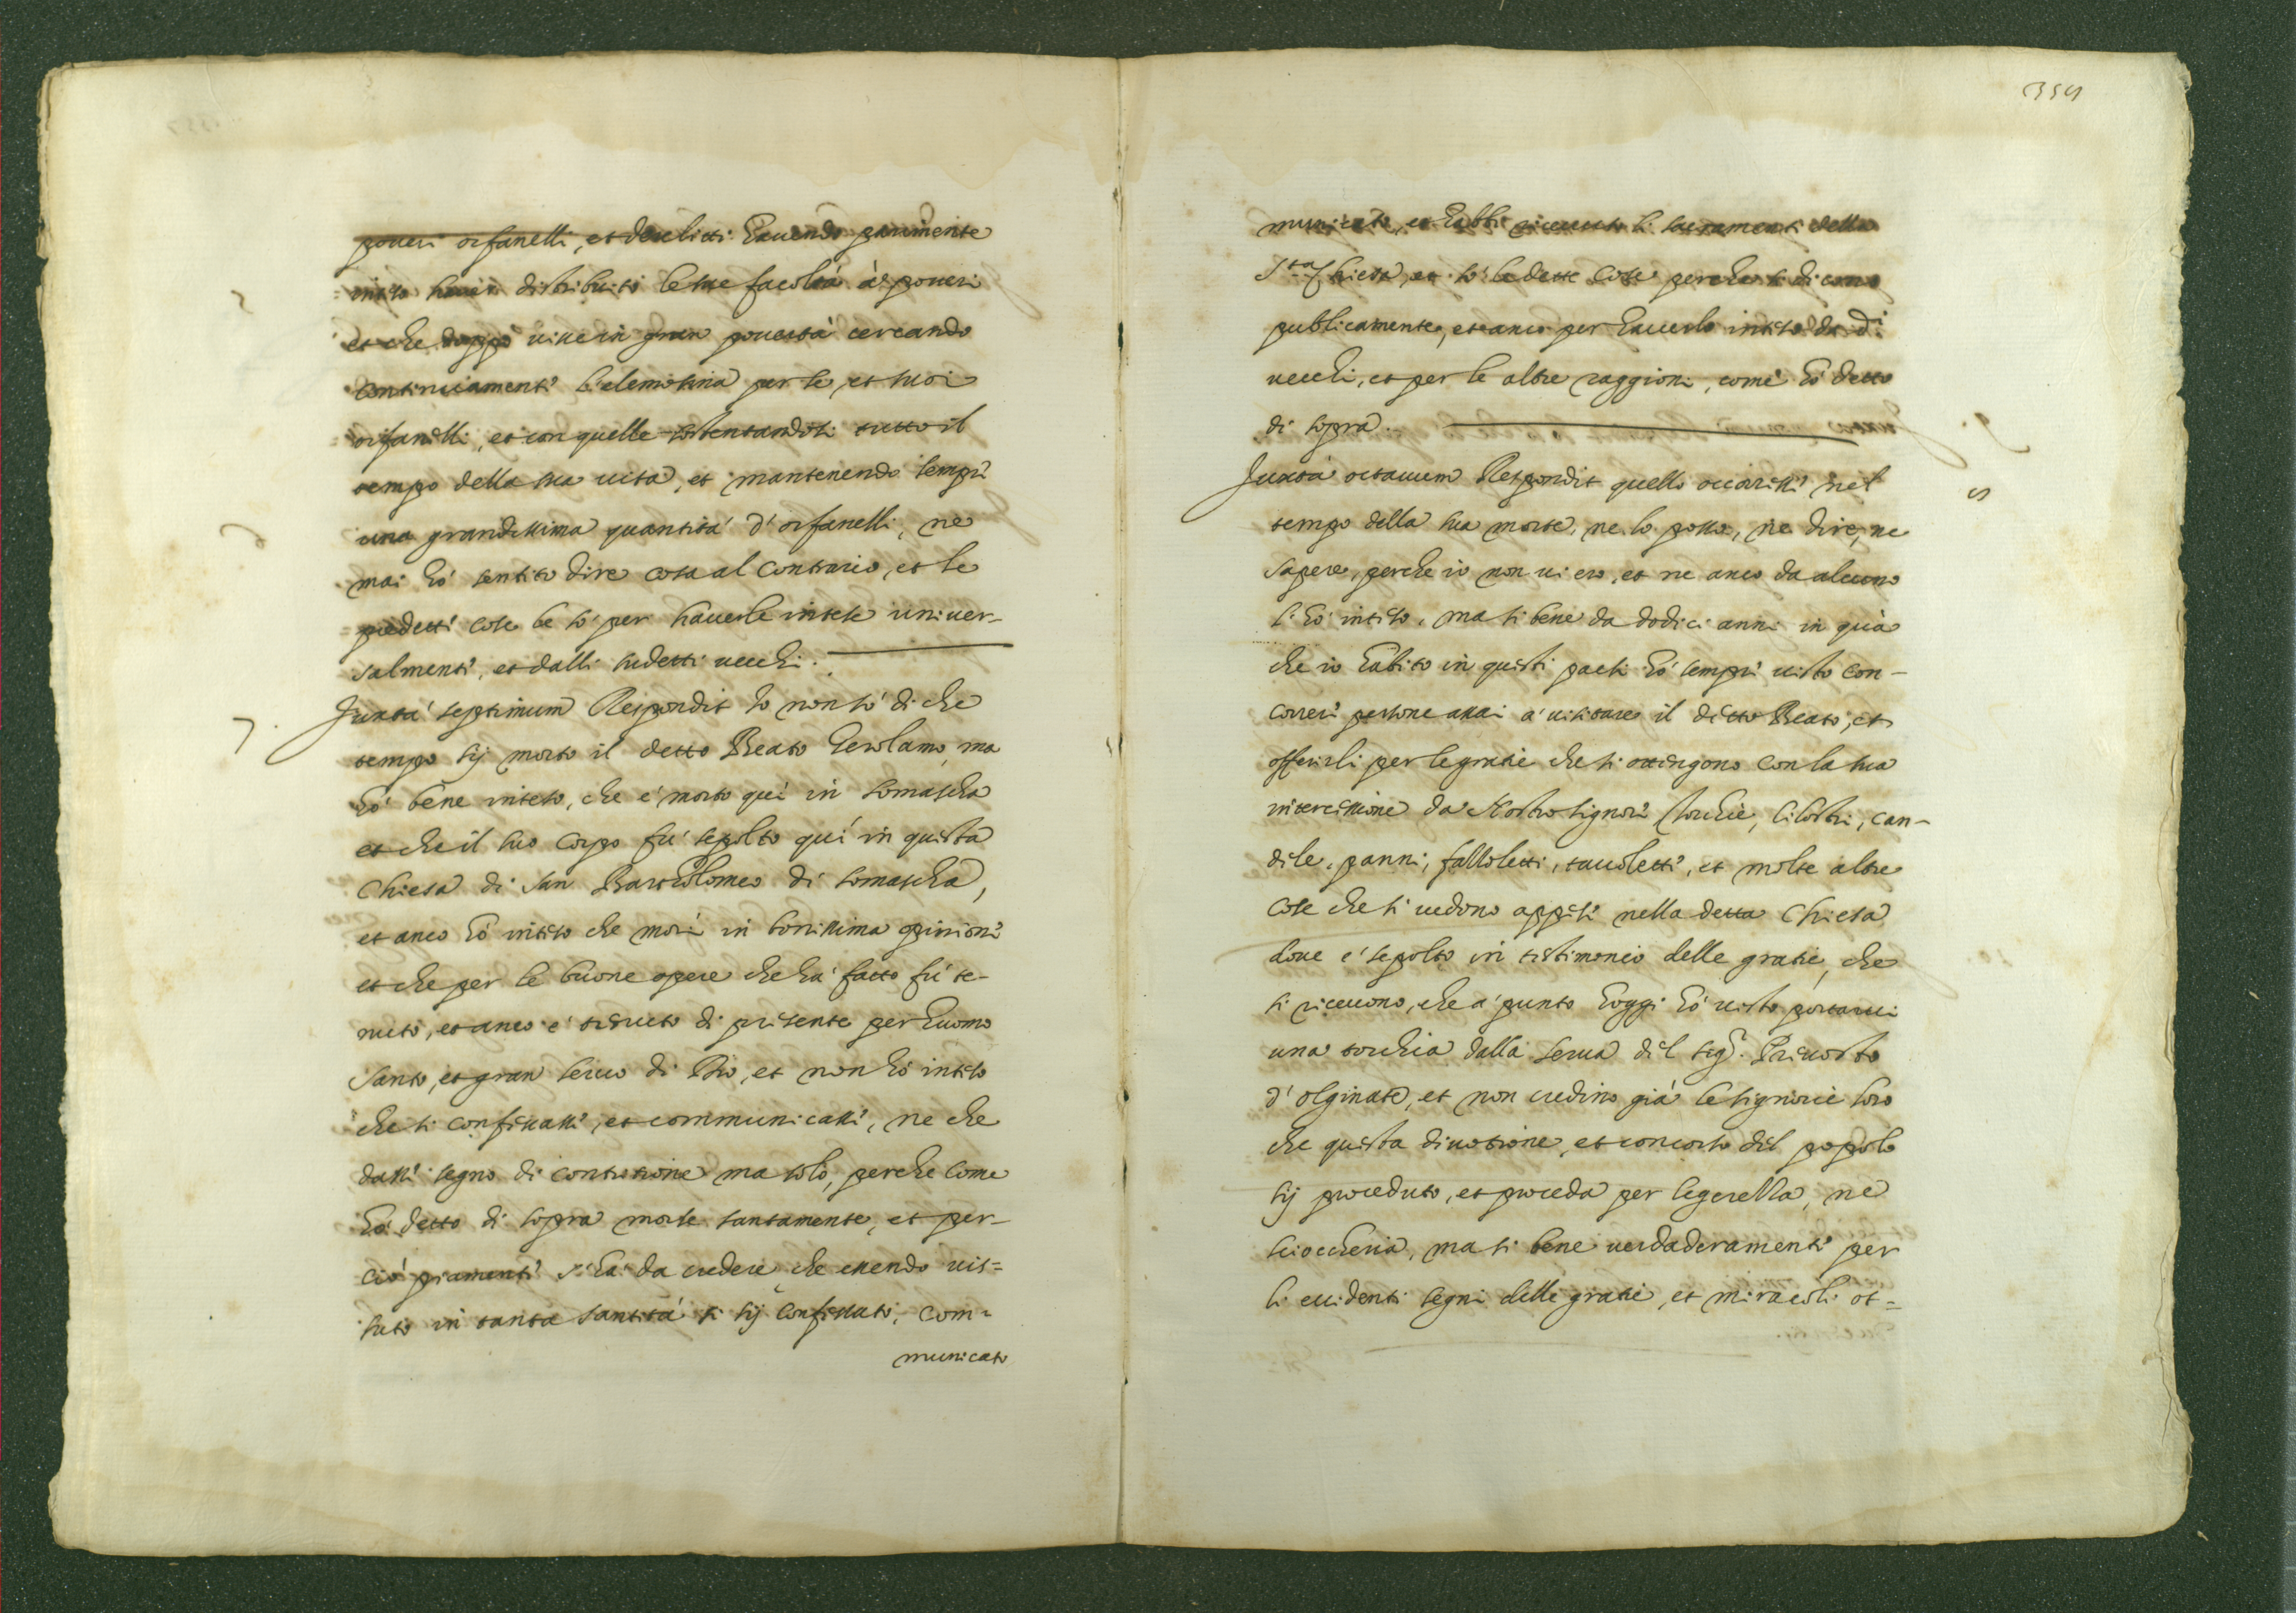 poueri orfanelli, et derelitti hauendo parimente
inteso hauer distribuito le sue facoltà à poueri
et che doppò uisse in gran pouertà cercando
continuamente l'elemosina per se, et suoi
orfanelli, et con quelle sostentandosi tutto il
tempo della sua uita, et mantenendo sempre
una grandissima quantità d'orfanelli, ne
mai hò sentito dire cosa al contrario, et le
predette cose le sò per hauerle intese uniuer-
salmente, et dalli sudetti uecchi.
7. Juxtà septimum Respondit Io non sò di che
tempo sij morto il detto Beato Gerolamo, ma
hò bene inteso, che è morto quì in Somascha
et che il suo corpo fù sepolto quì in questa
Chiesa di San Bartholomeo di Somascha,
et anco hò inteso che morì in bonissima opinione
et che per le buone opere che hà fatto fù te-
nuto, et anco è tenuto di presente per huomo
Santo, et gran seruo di Dio, et non hò inteso
che si confessasse, et communicasse, ne che
dasse segno di contritione ma solo, perche come
hò detto di sopra morse santamente, et per-
ciò piamente s'hà da credere che essendo uis=
suto in tanta santità si sij confessato, com=
municato
354
municato, et habbi riceuuto li sacramenti della
S.ta Chiesa, et sò le dette cose perche si dicono
publicamente, et anco per hauerlo inteso da d.i
uecchi, et per le altre raggioni, come hò detto
di sopra.
Juxta octauum Respondit quello occorresse nel
tempo della sua morte, ne lo posso, ne dire, ne
sapere, perche io non ui ero, et ne anco da alcuno
l'hò inteso, ma si bene da dodici anni in quà
che io habito in questi paesi hò sempre uisto con-
correre persone assai à uisitare il detto Beato, et
offerirli per le gratie che si ottengono con la sua
intercessione da Nostro Signore torchie, cilostri, can-
dile, panni, fassoletti, tauolette, et molte altre
cose che si uedono appese nella detta Chiesa
doue è sepolto in testimonio delle gratie, che
si riceuono, che a punto hoggi hò uisto portarui
una torchia dalla serua del Sig.r Preuosto
d'Olginate, et non credino già le signorie loro
che questa diuotione, et concorso del popolo
sij proceduto, et proceda per legerezza, ne
sciocheria, ma si bene uerdaderamente per
li euidenti segni delle gratie, et miracoli ot=